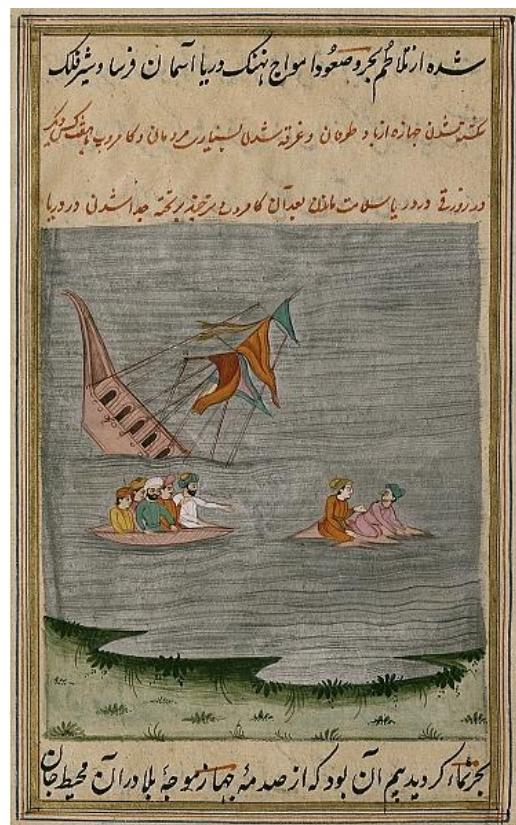 شده از تلاطم بحر و صعود امواج نهنگ دریا آسمان فرسا و شیر فلک
شدن جهازه از باد طوفان و غرقه شدن بسیاری مردمان و کامروپ
در زورقی در دریا سلامت ماندن بعد آن کامروپ و مترچند بر تخته جدا شدن در دریا
کردیدیم آن بود که از صدمهٔ جهاز موجهٔ بلا در آن محیط جان